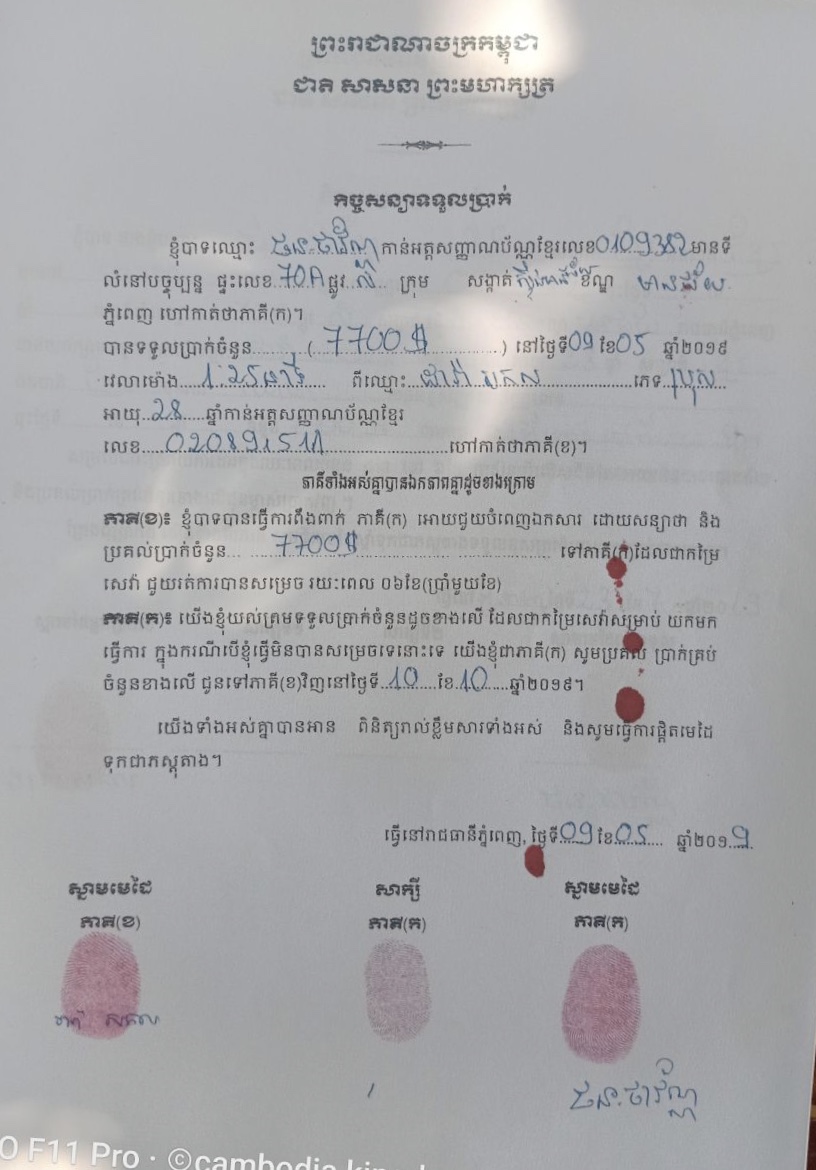 ព្រះរាជាណាចក្រកម្ពុជា
ជាតិ សាសនា ព្រះមហាក្សត្រ
កិច្ចសន្យាទទួលប្រាក់
ខ្ញុំបាទឈ្មោះ កាន់អត្តសញ្ញាណប័ណ្ណខ្មែរលេខ0109382មានទី
លំនៅបច្ចុប្បន្ន ផ្ទះលេខ..70Aផ្លូវ.... ក្រុម សង្កាត់ មានជ័យ
ភ្នំពេញ ហៅកាត់ថាភាគី(ក)។
បានទទួលប្រាក់ចំនួន........(7700$............) នៅថ្ងៃទី09 ខែ05 ឆ្នាំ២០១៩
វេលាម៉ោង....1:25នាទី...... ពីឈ្មោះ......................ភេទ..ប្រុស
អាយុ..28.....ឆ្នាំកាន់អត្តសញ្ញាណប័ណ្ណខ្មែរ
លេខ....ហៅកាត់ថាភាគី(ខ)។
ភាគីទាំងអស់គ្នាបានឯកភាពគ្នាដូចខាងក្រោម
ភាគី(ខ)៖ ខ្ញុំបាទបានធ្វើការពឹងពាក់ ភាគី(ក) អោយជួយបំពេញឯកសារ ដោយសន្យាថា និង
ប្រគល់ប្រាក់ចំនួន... ....7700$................................ ទៅភាគី(ក)ដែលជាកម្រៃ
សេវ៉ា ជួយរត់ការបានសម្រេច រយៈពេល ០៦ខែ(ប្រាំមួយខែ)
ភាគី(ក)៖ យើងខ្ញុំយល់ព្រមទទួលប្រាក់ចំនួនដូចខាងលើ ដែលជាកម្រៃសេវ៉ាសម្រាប់ យកមក
ធ្វើការ ក្នុងករណីបើខ្ញុំធ្វើមិនបានសម្រេចទេនោះទេ យើងខ្ញុំជាភាគី(ក) សូមប្រគល់ ប្រាក់គ្រប់
ចំនួនខាងលើ ជូនទៅភាគី(ខ)វិញនៅថ្ងៃទី..10........ខែ.10......ឆ្នាំ២០១៩។
យើងទាំងអស់គ្នាបានអាន ពិនិត្យរាល់ខ្លឹមសារទាំងអស់ និងសូមធ្វើការផ្តិតមេដៃ
ទុកជាភស្តុតាង។
ធ្វើនៅរាជធានីភ្នំពេញ, ថ្ងៃទី..09 ខែ..05..... ឆ្នាំ២០១..9..
ស្នាមមេដៃ សាក្សី ស្នាមមេដៃ
ភាគី(ខ) ភាគី(ក) ភាគី(ក)
O F11 Pro · ©cambodia